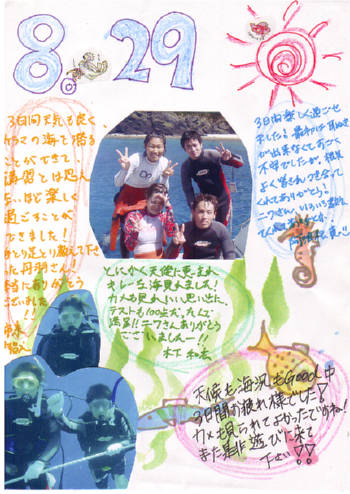 8.29
3日間天気も良く、
ケラマの海で潜る
ことができて
講習とは思え
ないほど楽しく
過ごすことが
できました!
教えて下
さった丹羽さん
ありがとう
ございました
!!
3日間楽しく過ごせ
ました!最初は耳ぬき
が出来なくてすごく
不安でしたが、根気
よく皆さんつき合って
くれてありがとう!
ニワさん
とにかく天候に恵まれ
キレーな海見れました!
カメも見れいい思い出に。
テストも100点だったんで
満足!!ニワさんありがとう
ございましたー!!
木下
天候も海況もGood中
3日間お疲れ様でした!
カメも見られてよかったですね!
また是非遊びに来て
下さい!!